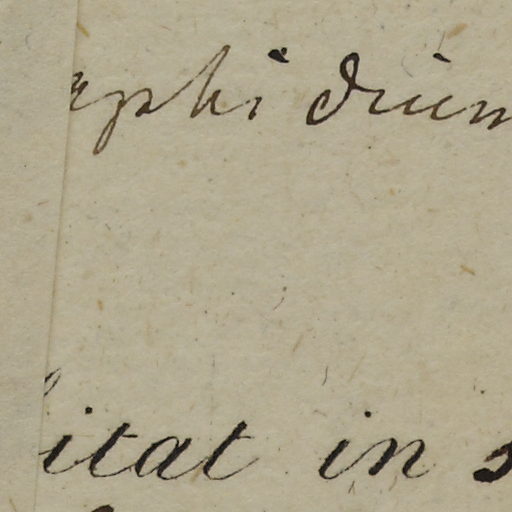 aphidium
itat in s